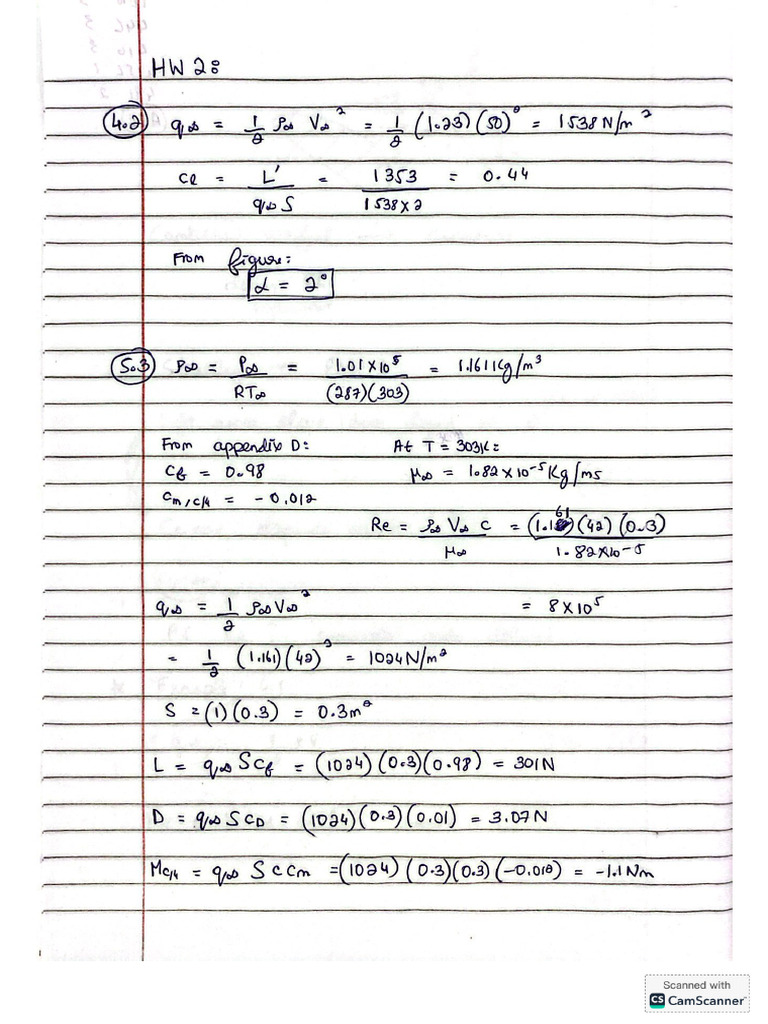 HW 2:
4.2 q∞ = 1/2 ρ∞ V∞² = 1/2 (1.23)(50)² = 1538 N/m²
cℓ = L'/(q∞ S) = 1353/(1538×2) = 0.44
From figure:
α = 2°
5.3 ρ∞ = P∞/(RT∞) = 1.01×10⁵/((287)(303)) = 1.161 Kg/m³
From appendix D: At T = 303K:
Cℓ = 0.98 μ∞ = 1.82×10⁻⁵ Kg/ms
Cm,c/4 = -0.012
Re = ρ∞ V∞ c/μ∞ = (1.161)(42)(0.3)/(1.82×10⁻⁵)
q∞ = 1/2 ρ∞ V∞² = 8×10⁵
= 1/2 (1.161)(42)² = 1024 N/m²
S = (1)(0.3) = 0.3m²
L = q∞ S Cℓ = (1024)(0.3)(0.98) = 301N
D = q∞ S CD = (1024)(0.3)(0.01) = 3.07N
Mc/4 = q∞ S c Cm = (1024)(0.3)(0.3)(-0.012) = -1.1Nm
Scanned with
CS CamScanner